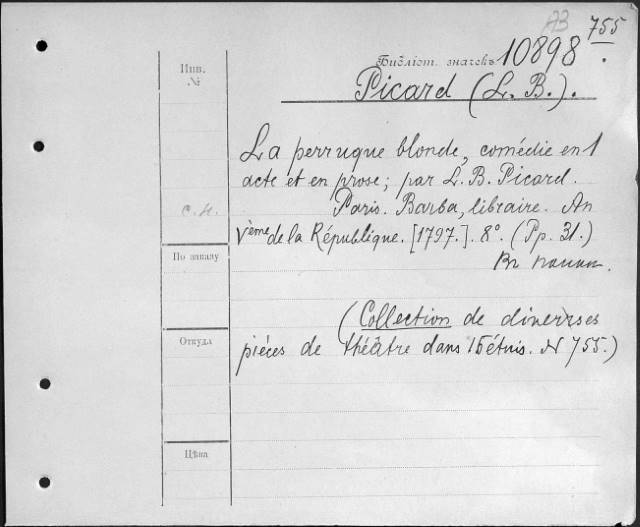 755
Инв. №
Библіот. значекъ 10898
Picard (L. B.).
La perruque blonde, comédie en 1
acte et en prose; par L. B. Picard.
Paris. Barba, libraire. An
Vème de la République. [1797.]. 8°. (Pp. 31.)
Въ папкѣ.
с. н.
По заказу
(Collection de diverses
pièces de théâtre dans 15 étuis. N 755.)
Откуда
Цѣна